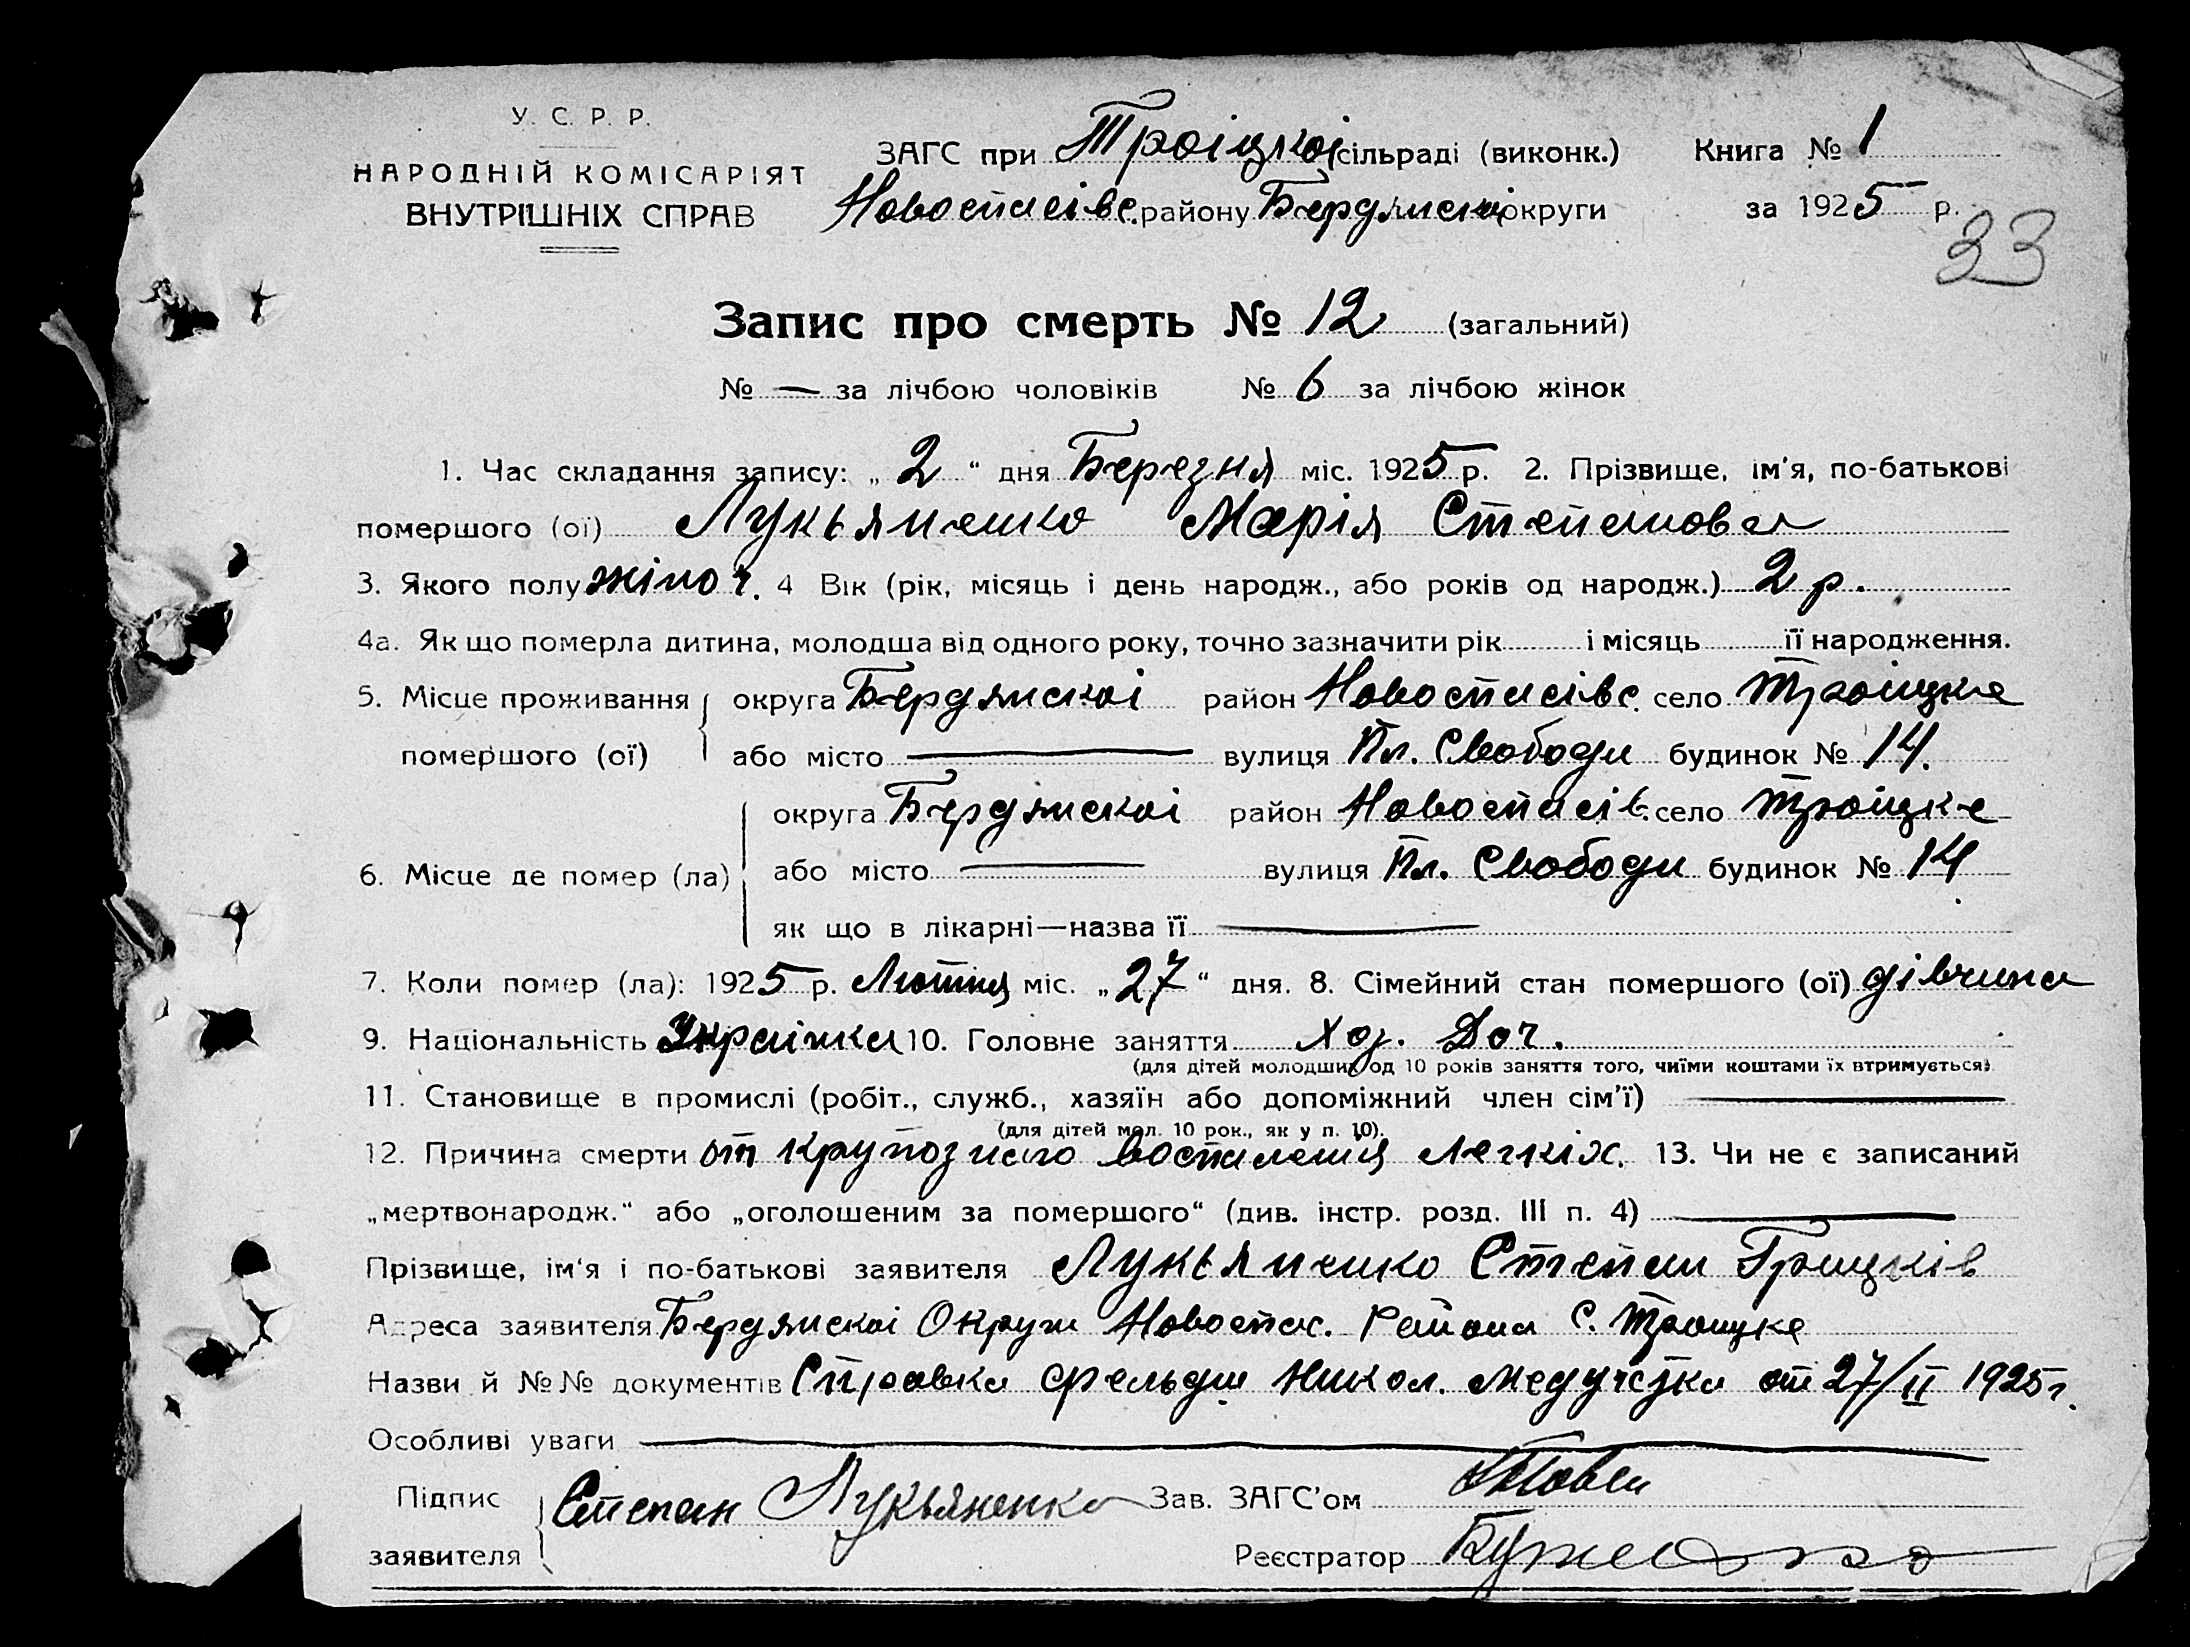 У. С. Р. Р.
НАРОДНІЙ КОМІСАРІЯТ
ВНУТРІШНІХ СПРАВ
ЗАГС при Троіцкоі сільраді (виконк.) Книга № 1
Новоспасівс. району Бердянскоі округи за 1925 р.
33
Запис про смерть № 12 (загальний)
№ — за лічбою чоловіків № 6 за лічбою жінок
1. Час складання запису: „ 2 “ дня Березня міс. 1925 р. 2. Прізвище, ім'я, по-батькові
помершого (ої) Лукьяненко Марія Степанова
3. Якого полу жіноч. 4 Вік (рік, місяць і день народж., або років од народж.) 2 р.
4а. Як що померла дитина, молодша від одного року, точно зазначити рік і місяць її народження.
5. Місце проживання округа Бердянскоі район Новоспасівс. село Троіцке
помершого (ої) або місто — вулиця Пл. Свободи будинок № 14.
округа Бердянскоі район Новоспасів. село Троіцке
6. Місце де помер (ла) або місто — вулиця Пл. Свободи будинок № 14
як що в лікарні—назва її —
7. Коли помер (ла): 1925 р. Лютня міс. „ 27 “ дня. 8. Сімейний стан помершого (ої) дівчина
9. Національність Украінка 10. Головне заняття Хоз. Доч.
(для дітей молодших од 10 років заняття того, чиїми коштами їх втримується)
11. Становище в промислі (робіт., служб., хазяїн або допоміжний член сім'ї) —
(для дітей мол. 10 рок., як у п. 10).
12. Причина смерти от крупозного воспаления легкіх. 13. Чи не є записаний
„мертвонародж.“ або „оголошеним за помершого“ (див. інстр. розд. III п. 4) —
Прізвище, ім'я і по-батькові заявителя Лукьяненко Степан Грицків
Адреса заявителя Бердянскоі Округи Новоспас. Района С. Троицке
Назви й №№ документів Справка фельдш Никол. Медучстка от 27/II 1925 г.
Особливі уваги —
Підпис Степан Лукьяненко Зав. ЗАГС'ом
заявителя Реєстратор